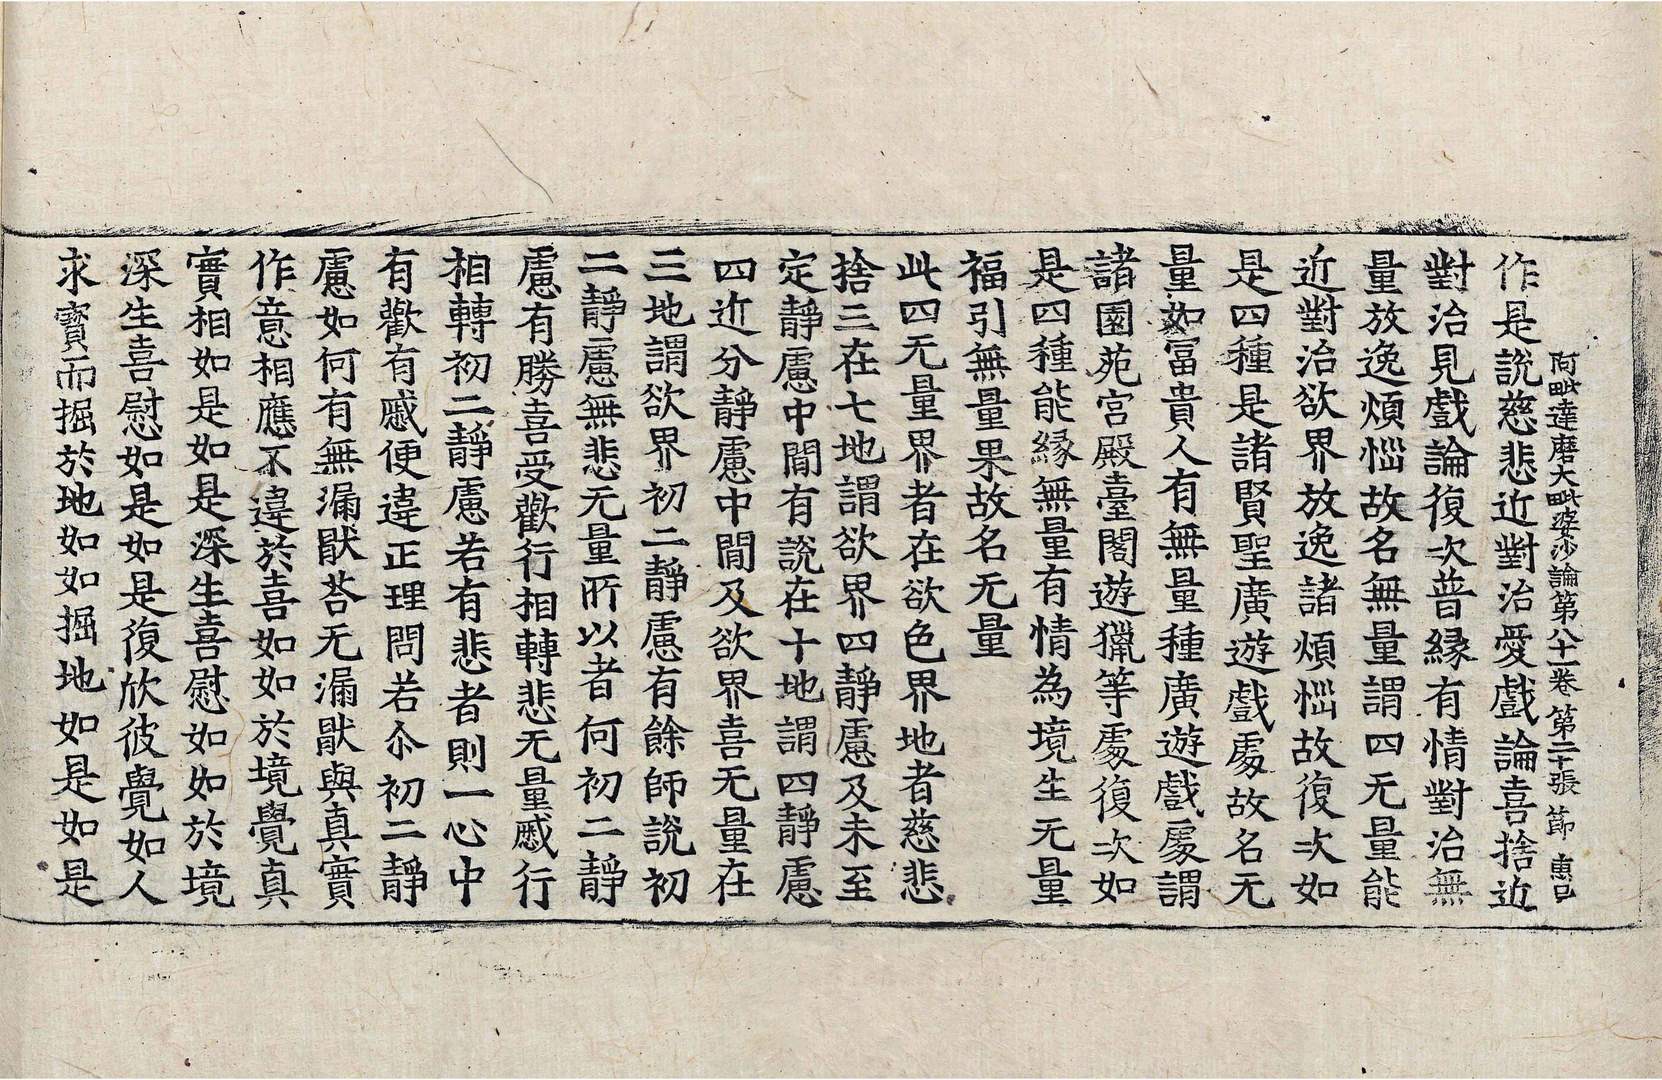 阿毗達磨大毗婆沙論第八十一卷 第二十張 節 惠
作是說慈悲近對治愛戲論喜捨近
對治見戲論復次普緣有情對治無
量放逸煩惱故名無量謂四无量能
近對治欲界放逸諸煩惱故復次如
是四種是諸賢聖廣遊戲處故名无
量如冨貴人有無量種廣遊戲處謂
諸園苑宮殿臺閣遊獵等處復次如
是四種能緣無量有情為境生无量
福引無量果故名无量
此四无量界者在欲色界地者慈悲
捨三在七地謂欲界四靜慮及未至
定靜慮中閒有說在十地謂四靜慮
四近分靜慮中閒及欲界喜无量在
三地謂欲界初二靜慮有餘師說初
二靜慮無悲无量所以者何初二靜
慮有勝喜受歡行相轉悲无量慼行
相轉初二靜慮若有悲者則一心中
有歡有慼便違正理問若尒初二靜
慮如何有無漏猒荅无漏猒與真實
作意相應不違於喜如如於境覺真
實相如是如是深生喜慰如如於境
深生喜慰如是如是復欣彼覺如人
求寶而掘於地如如掘地如是如是